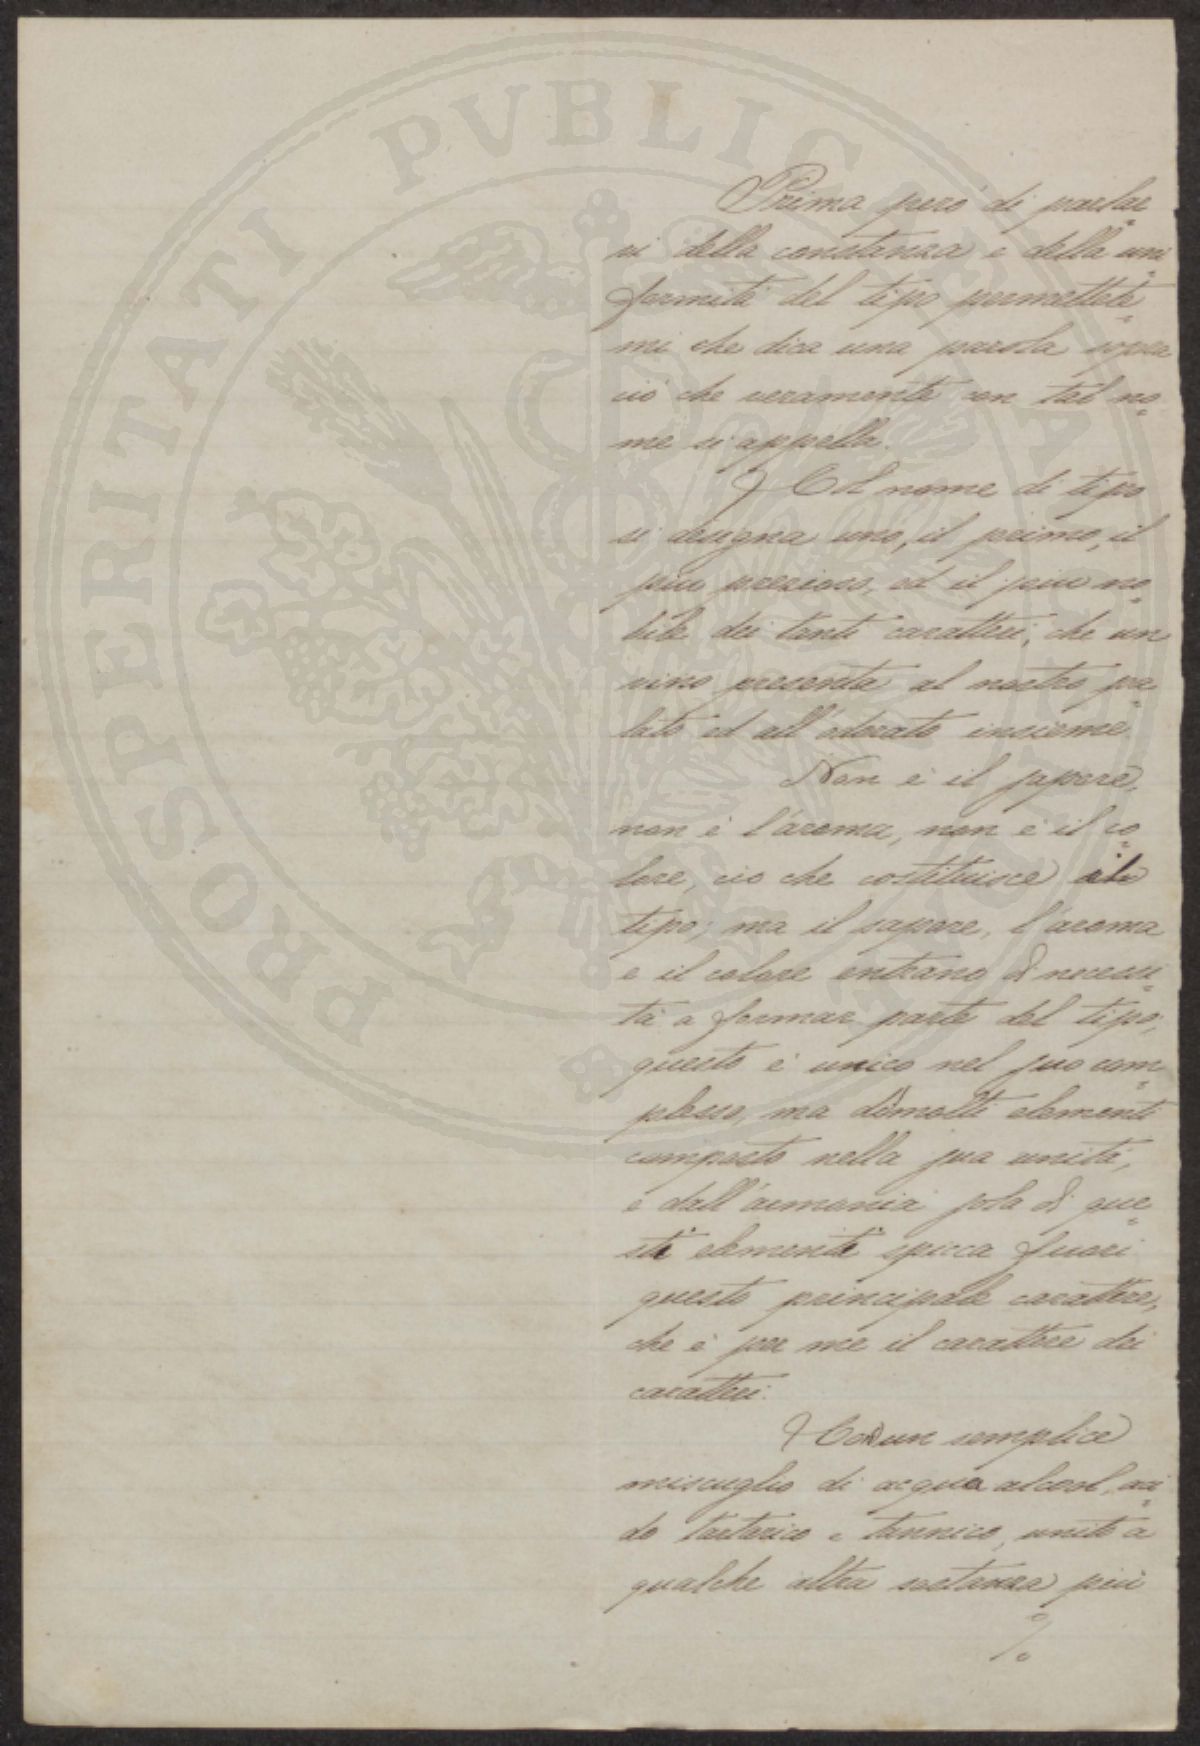 PROSPERITATI PVBLICAE AVGENDAE
Prima però di parlar
vi della constanza e della uni
formità del tipo permettete
mi che dica una parola sopra
ciò che veramente con tal no
me si appella.
Col nome di tipo
si designa uno, il primo, il
più prezioso, ed il più no
bile dei tanti caratteri, che un
vino presenta al nostro pa
lato ed all'odorato insieme.
Non è il sapore,
non è l'aroma, non è il co
lore, ciò che costituisce il
tipo; ma il sapore, l'aroma
e il colore entrano di necessi
tà a formar parte del tipo,
questo è unico nel suo com
plesso, ma di molti elementi
composto nella sua unità,
e dall'armonia sola di que
sti elementi spicca fuori
questo principale carattere,
che è per me il carattere dei
caratteri.
Con un semplice
miscuglio di acqua alcool, aci
do tartarico e tannico, unito a
qualche altra sostanza più